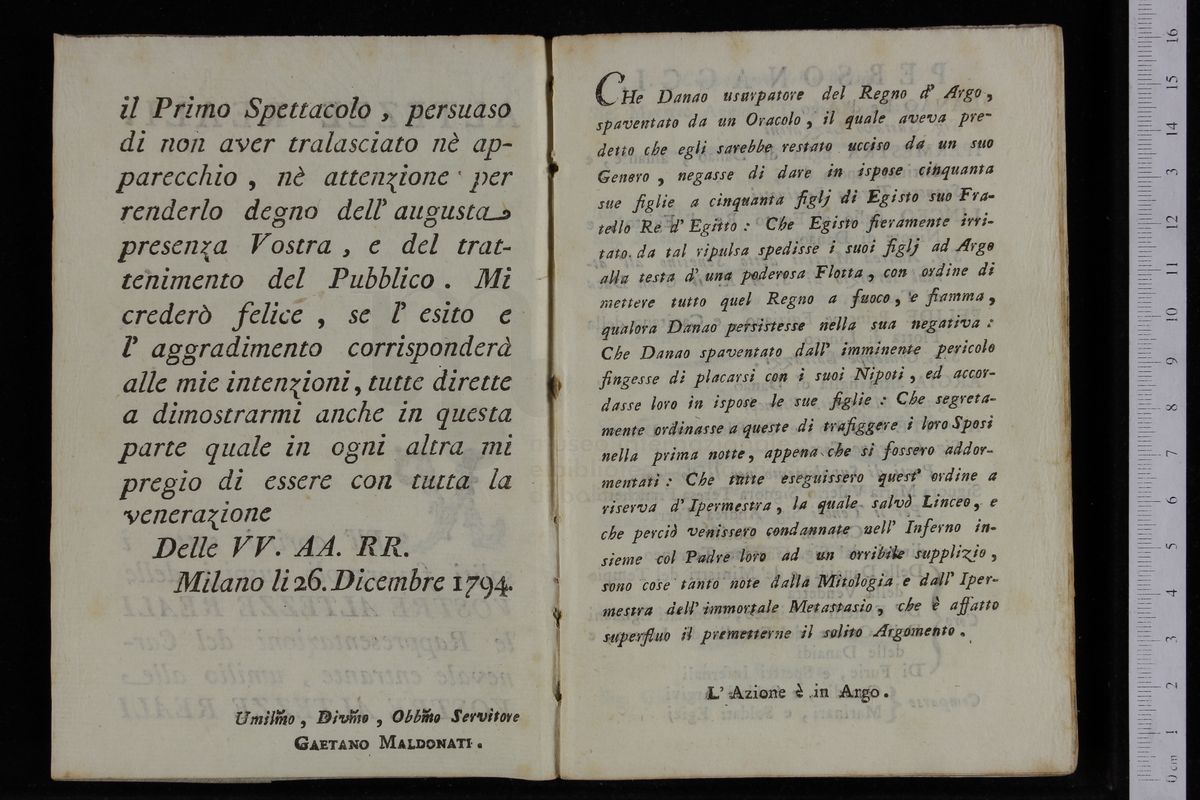 il Primo Spettacolo , persuaso
di non aver tralasciato nè ap-
parecchio , nè attenzione per
renderlo degno dell' augusta
presenza Vostra , e del trat-
tenimento del Pubblico . Mi
crederò felice , se l' esito e
l' aggradimento corrisponderà
alle mie intenzioni , tutte dirette
a dimostrarmi anche in questa
parte quale in ogni altra mi
pregio di essere con tutta la
venerazione
Delle VV. AA. RR.
Milano li 26. Dicembre 1794.
Umilm̃o , Divm̃o , Obbm̃o Servitore
GAETANO MALDONATI .
CHe Danao usurpatore del Regno d' Argo ,
spaventato da un Oracolo , il quale aveva pre-
detto che egli sarebbe restato ucciso da un suo
Genero , negasse di dare in ispose cinquanta
sue figlie a cinquanta figlj di Egisto suo Fra-
tello Re d' Egitto : Che Egisto fieramente irri-
tato da tal ripulsa spedisse i suoi figlj ad Argo
alla testa d' una poderosa Flotta , con ordine di
mettere tutto quel Regno a fuoco , e fiamma ,
qualora Danao persistesse nella sua negativa :
Che Danao spaventato dall' imminente pericolo
fingesse di placarsi con i suoi Nipoti , ed accor-
dasse loro in ispose le sue figlie : Che segreta-
mente ordinasse a queste di trafiggere i loro Sposi
nella prima notte , appena che si fossero addor-
mentati : Che tutte eseguissero quest' ordine a
riserva d' Ipermestra , la quale salvò Linceo , e
che perciò venissero condannate nell' Inferno in-
sieme col Padre loro ad un orribile supplizio ,
sono cose tanto note dalla Mitologia e dall' Iper-
mestra dell' immortale Metastasio , che è affatto
superfluo il premetterne il solito Argomento .
L' Azione è in Argo .
0 cm 1 2 3 4 5 6 7 8 9 10 11 12 3 14 15 16